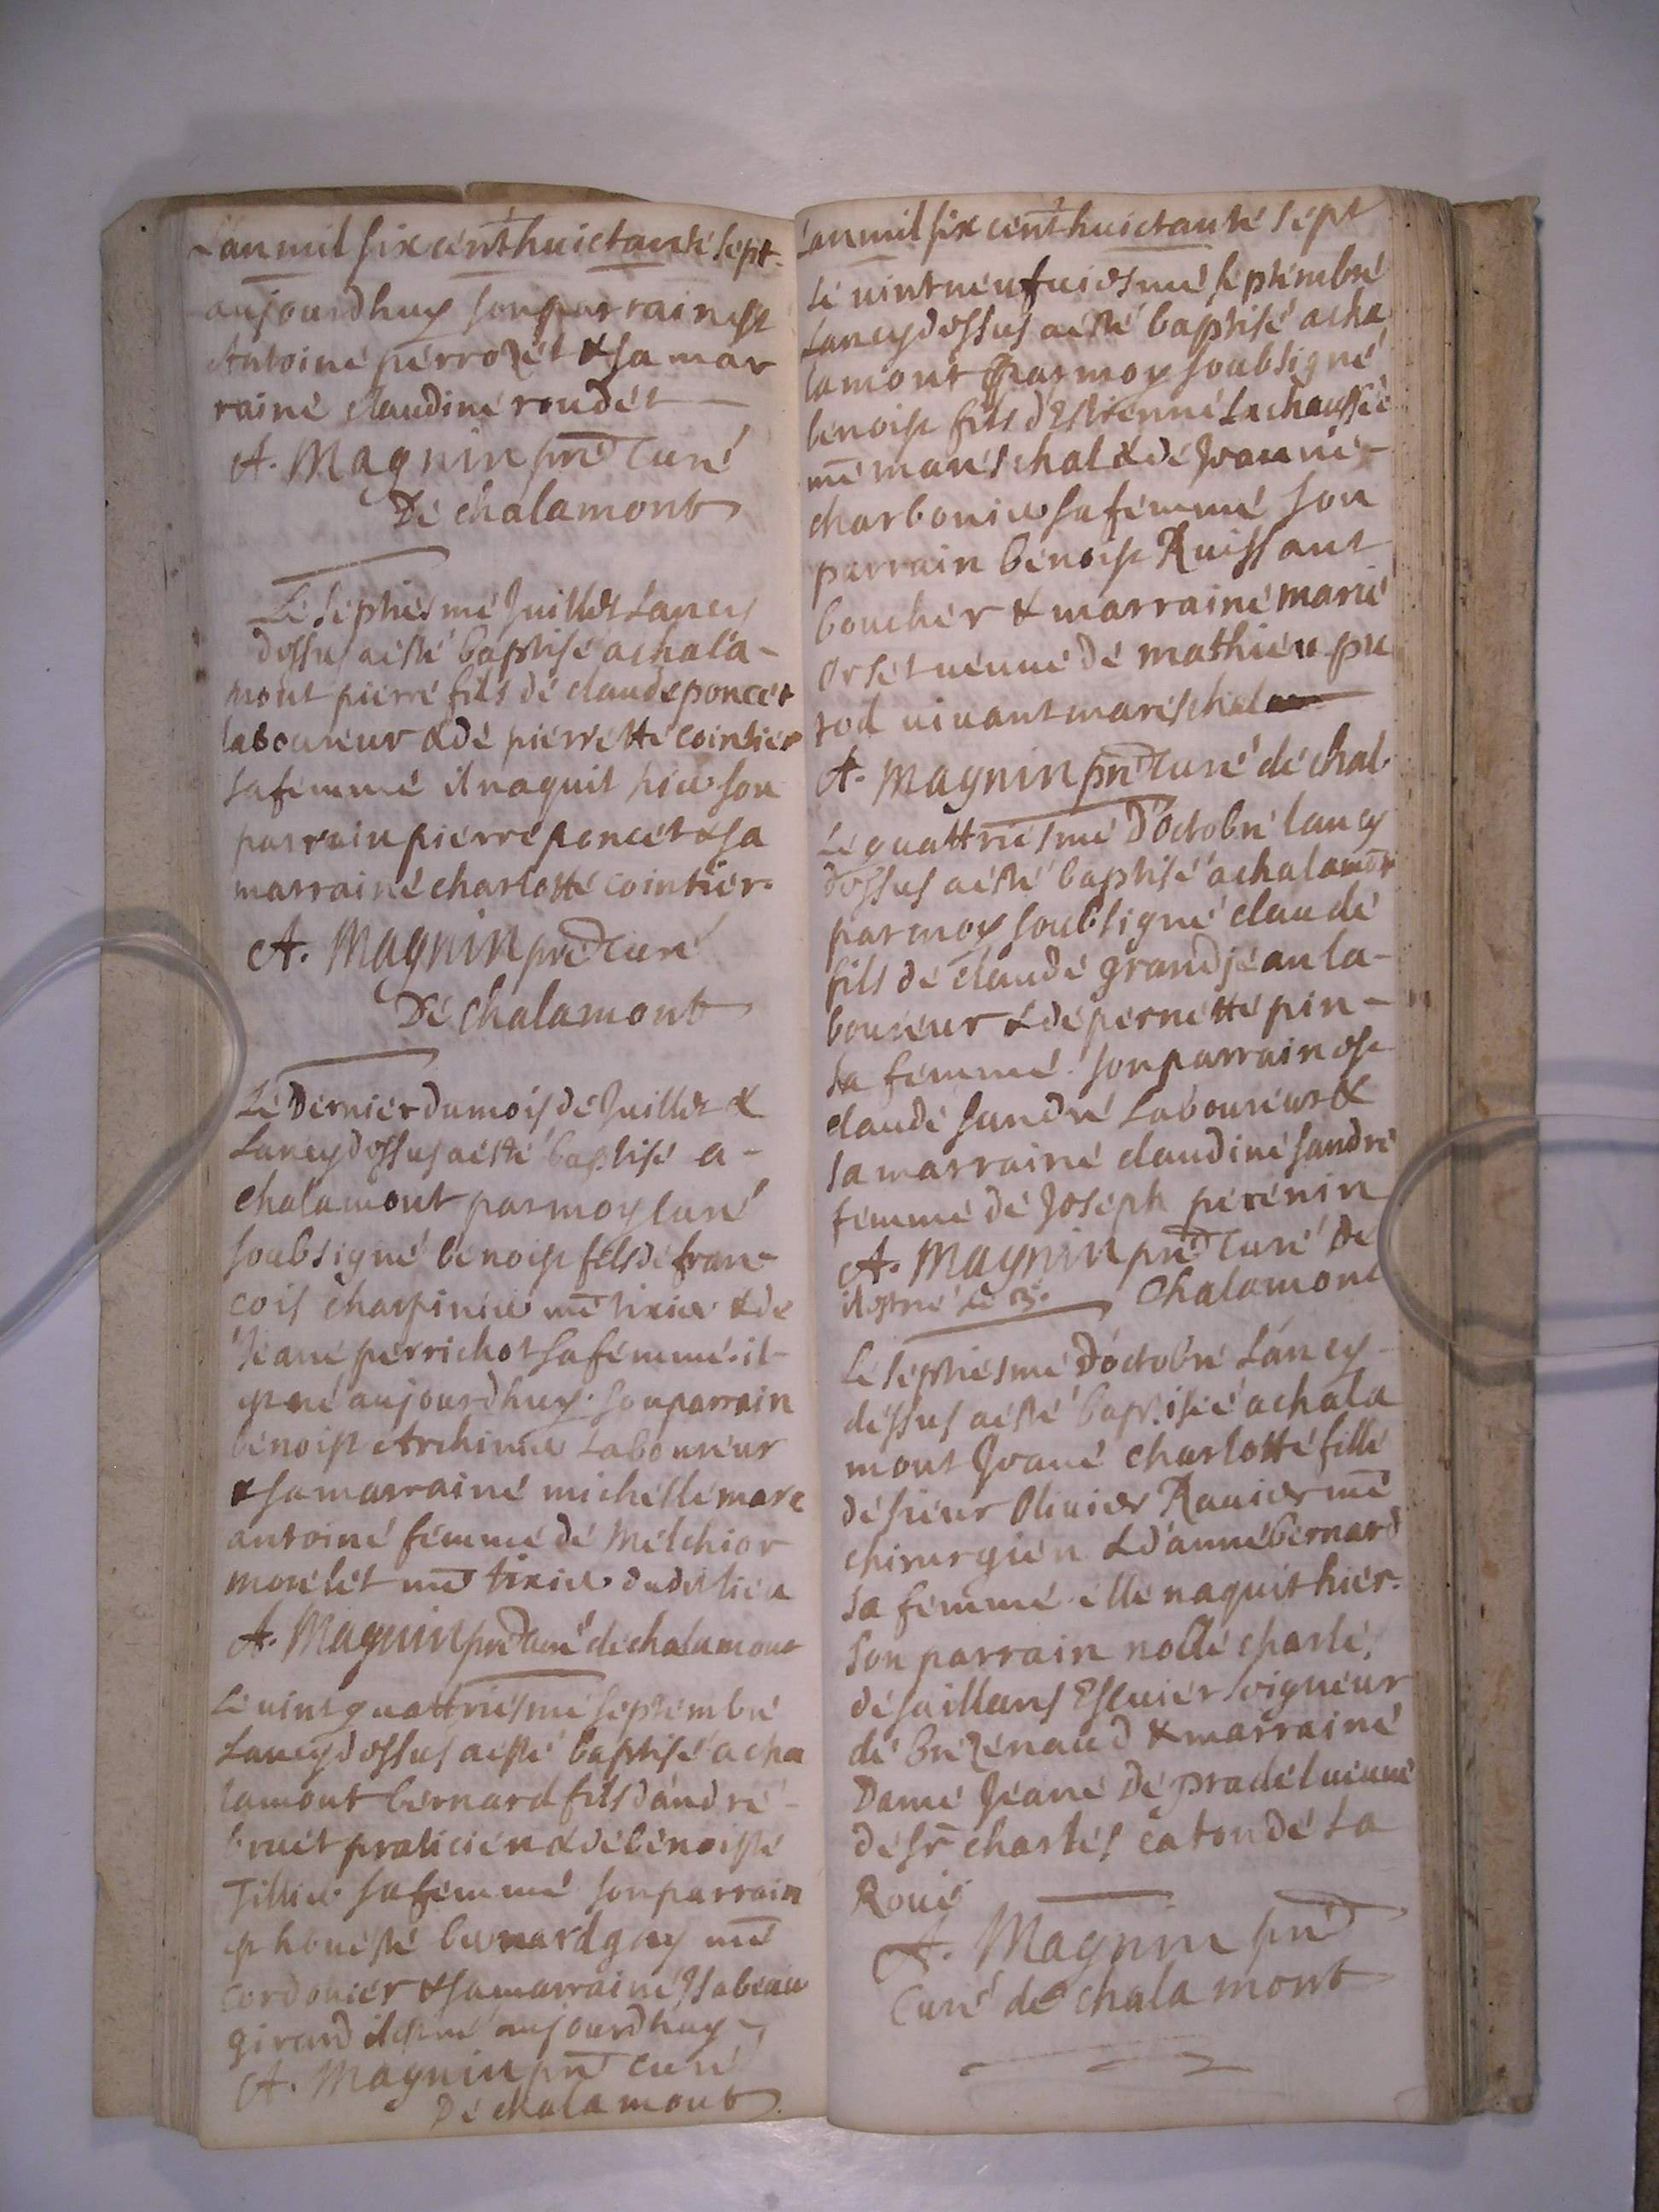 L'an mil six cent huictante sept.
aujourdhuy son parrain est
Antoine perrozet & sa mar
raine claudine roudet
A. Magnin pre curé
De chalamont
Le septiesme Juillet Lancy
dessus a esté baptisé a chala-
mont pierre fils de claude poncet
laboureur & de pierrette cointier
sa femme il naquit hier son
parrain pierre poncet & sa
marraine charlotte cointier.
A. Magnin pre curé
De chalamont
Le Dernier du mois de Juillet &
Lancy dessus a esté baptisé a-
chalamont par moy curé
soubsigné benoist fils de fran-
cois charpinier me tixier & de
Jeane perrichot sa femme. il-
est né aujourdhuy. son parrain
benoist Archinier Laboureur
& sa marraine michelle marc
antoine femme de Melchior
morelet me tixier dudit lieu
A. Magnin pre curé de chalamont
Le vint quattriesme septembre
Lancy dessus a esté baptisé a cha
lamont bernard fils dándré-
bruet praticien & de benoiste
Tillier sa femme son parrain
est honeste bernard guy me
cordonier & sa marraine Isabeau
girard il est né aujourdhuy
A. Magnin pre curé
De chalamont
Lan mil six cent huictante sept
Le vint neufuiesme septembre
Lancy dessus a esté baptisé a cha
lamont par moy soubsigné
benoist fils dEstienne Lachaussée
me mareschal & de Jeanne-
charbonier sa femme son
parrain benoist Ruissant
boucher & marraine marie
orset veuue de mathieu pu
rod viuant mareschal
A. Magnin pre curé de chal.
Le quattriesme D'octobre lancy
dessus a esté baptisé a chalamont
par moy soubsigné claude
fils de claude grandjean la-
boureur & de pernette pin-
sa femme. son parrain est
claude sandre Laboureur &
sa marraine claudine sandre
femme de Joseph perenin
A. Magnin pre curé De
il est né Le 3e. Chalamont
Le septiesme D'octobre Láncy-
dessus a esté baptisée a chala
mont Jeane charlotte fille
de sieur Oliuier Rauier me
chirurgien & d'anne bernard
sa femme elle naquit hier.
son parrain noble charle,
de saillans Escuier seigneur
de brezenaud & marraine
Dame Jeane De pradel veuue
de sr charles caton de La
Roue
A. Magnin pre
Curé de chalamont